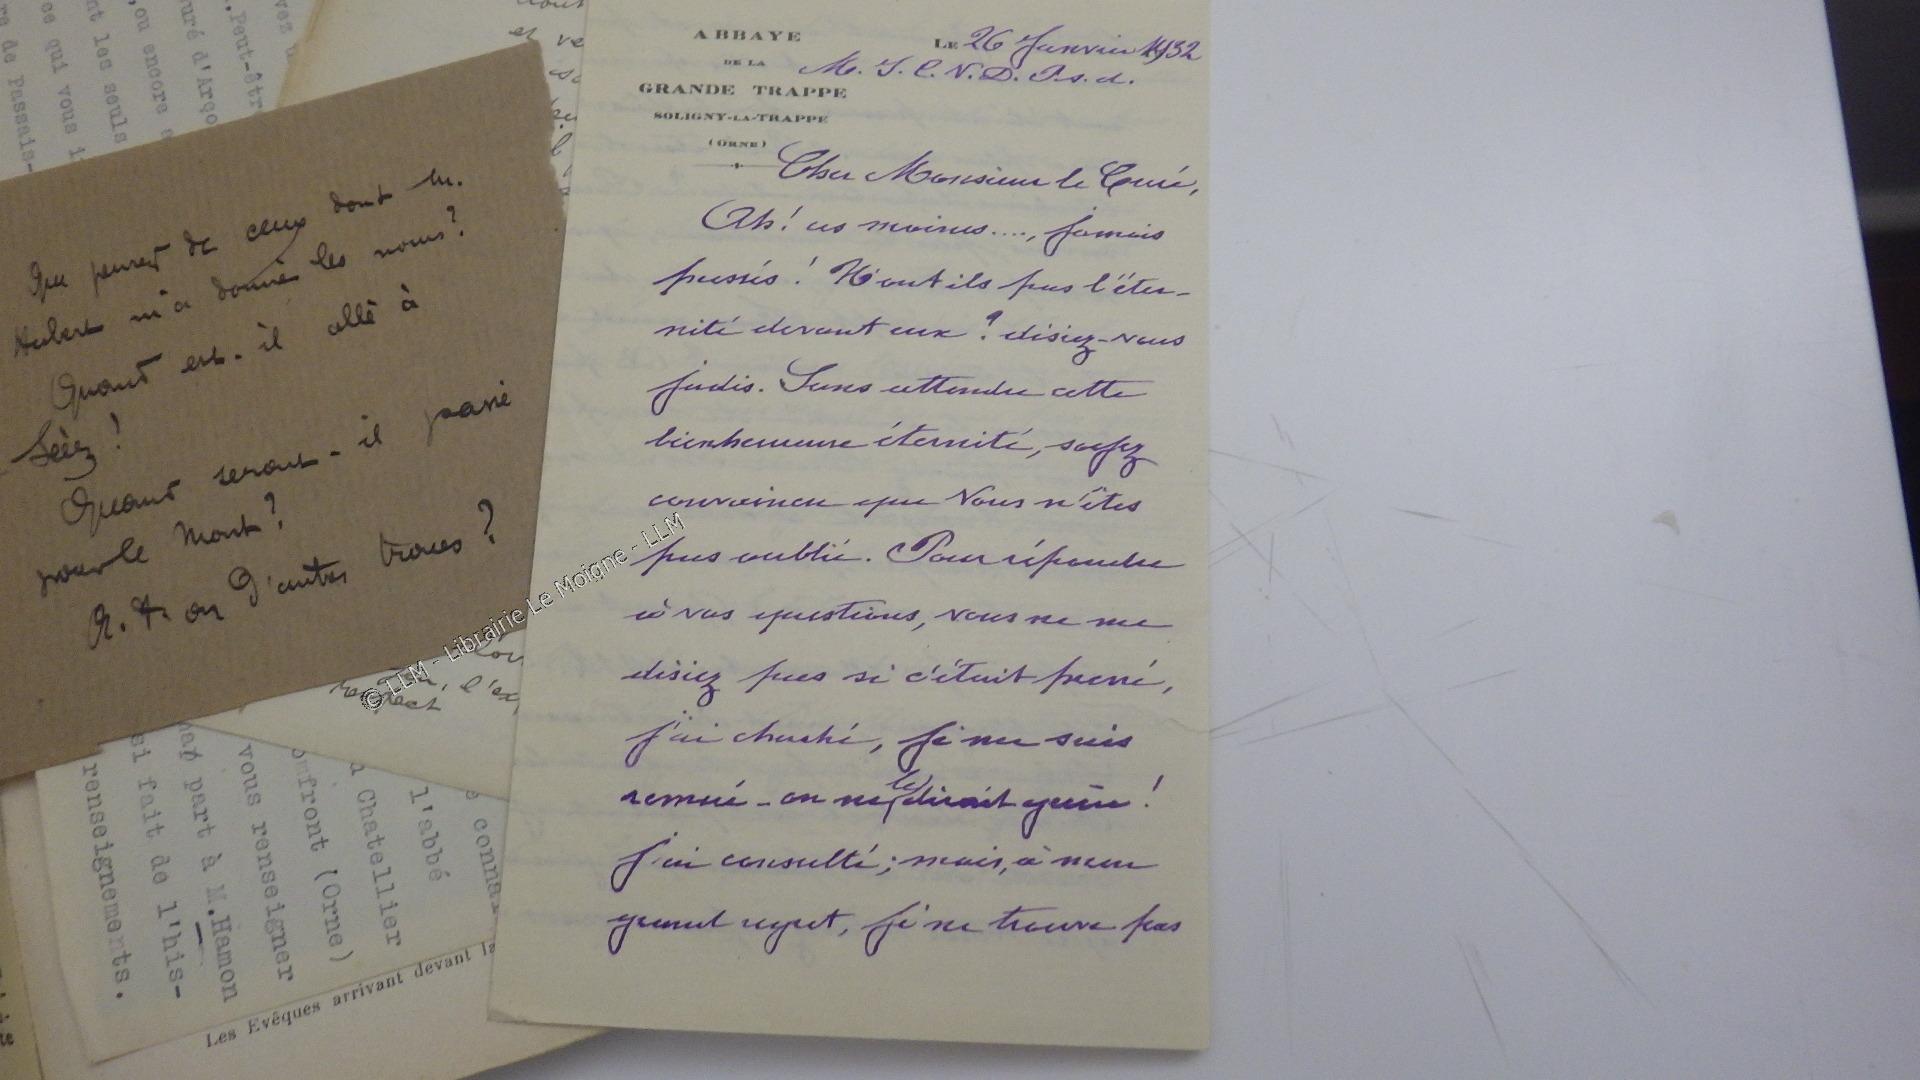 ABBAYE
DE LA
GRANDE TRAPPE
SOLIGNY-LA-TRAPPE
(ORNE)
LE 26 Janvier 1932
M. J. C. N. D. P. s. d.
Cher Monsieur le Curé,
Ah! ces moines...., jamais
pressés! N'ont ils pas l'éter-
nité devant eux? disiez-vous
jadis. Sans attendre cette
bienheureuse éternité, soyez
convaincu que Vous n'êtes
pas oublié. Pour répondre
à vos questions, vous ne me
disiez pas si c'était pressé,
j'ai cherché, je me suis
remué - on ne le dirait guère!
J'ai consulté; mais, à mon
grand regret, je ne trouve pas
Que pensez de ceux dont M.
Hubert m'a donné les noms?
Quand est-il allé à
Séez!
Quand serait-il passé
pour le Mont?
A-t-on d'autres traces?
© LLM - Librairie Le Moigne - LLM
Peut-êtr
uré d'Arço
ou encore
nt les seuls
ce qui vous i
re de Passais-
connai
l'abbé
u Chatellier
omfront (Orne)
vous renseigner
part à M.Hamon
si fait de l'his-
renseignements.
Les Evêques arrivant devant la